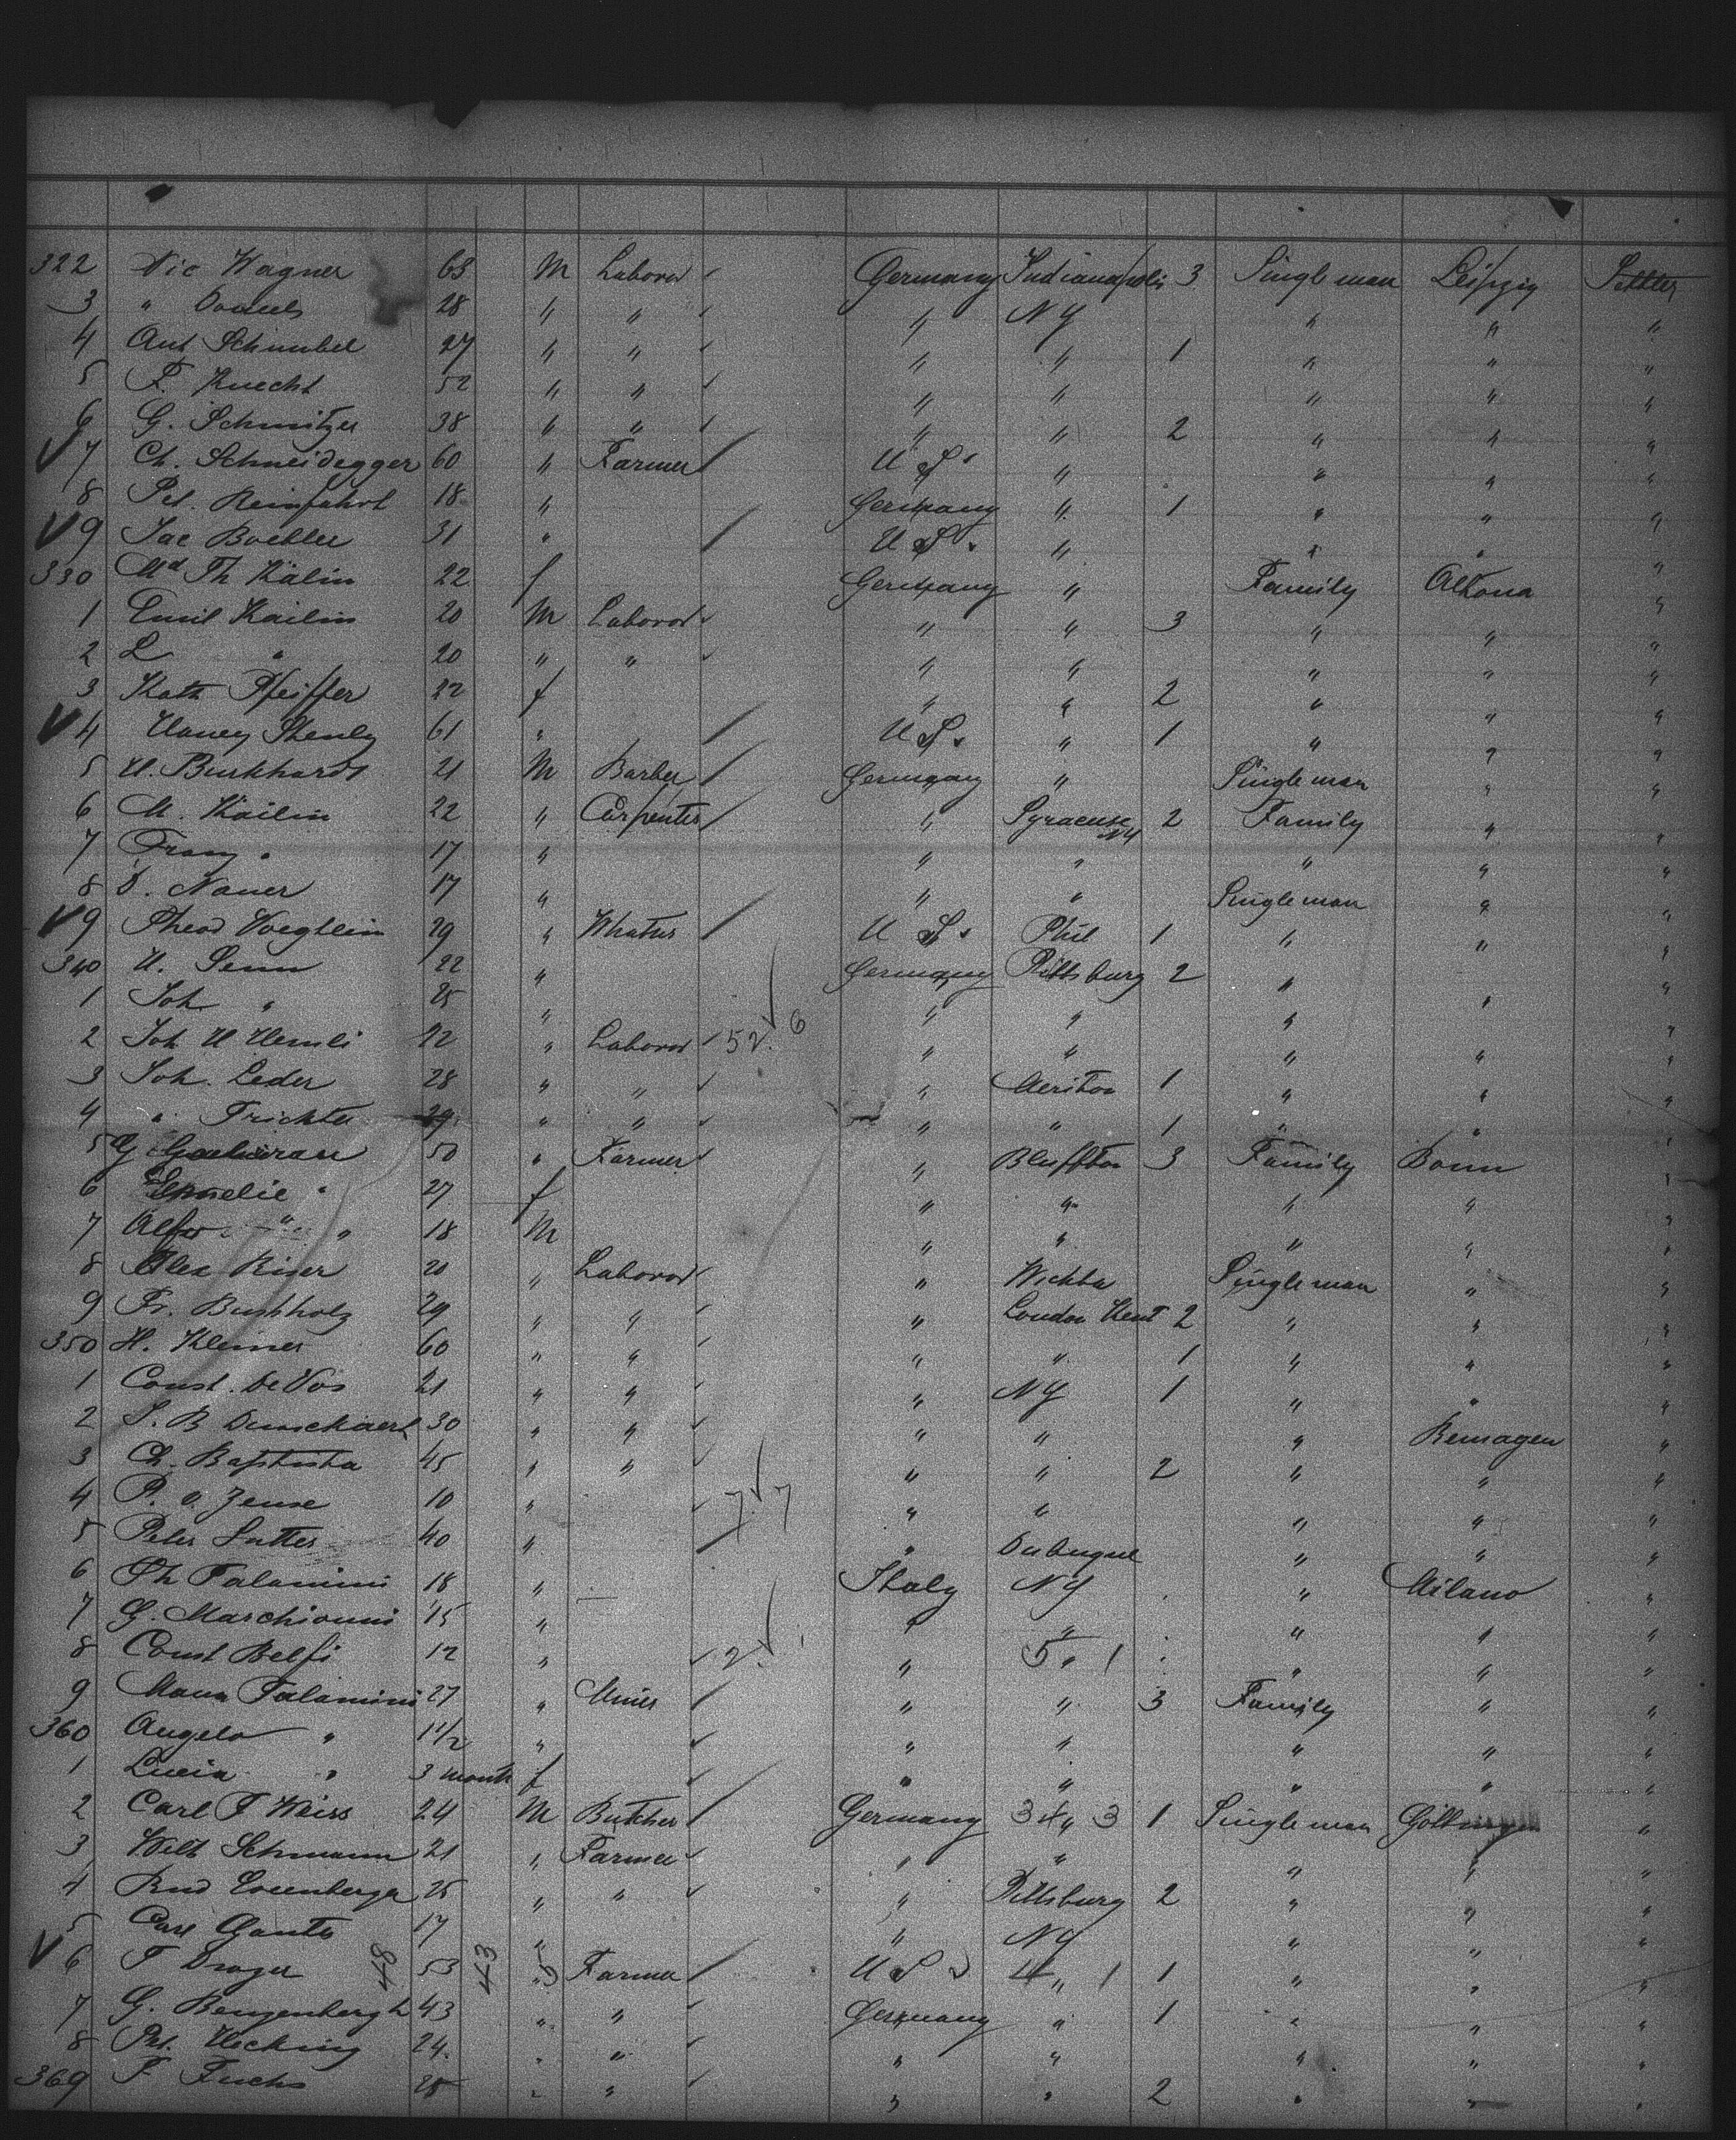 322 Nic Wagner 63 M Laboror Germany Indianapolis 3 Single man Leipzig Settler
3 " Daniels 28 " " " NY " " "
4 Ant Schnubel 27 " " " " 1 " " "
5 F. Knecht 52 " " " " " " "
6 G. Schmitzer 38 " " " " 2 " " "
7 Ch. Schneidegger 60 " Farmer U S. " " " "
8 Pet. Reinfahrt 18 " Germany " 1 " " "
9 Jac Boehler 31 " U S. " " " "
330 Md Th Kälin 22 f Germany " Family Altona "
1 Emil Kailin 20 M Laboror " " 3 " " "
2 L " 20 " " " " " " "
3 Kath Pfeiffer 22 f " " 2 " " "
4 Haney 61 " U S. " 1 " " "
5 U. Burkhardt 21 M Barber Germany " Single man " "
6 M. Kailin 22 " Carpenter " Syracuse NY 2 Family " "
7 Franz " 17 " " " " " "
8 D. Nauer 17 " " " Single man " "
9 Theod Voegtlin 29 " U S. Phil 1 " " "
340 U. Senn 22 " Germany Pittsburg 2 " "
1 Joh " 25 " " " " " "
2 Joh U 22 " Laboror 52. 6 " " " " "
3 Joh. Leder 28 " " " 1 " " "
4 " Trichter 29 " " " " 1 " " "
5 G 50 " Farmer " Bluffton 3 Family Bonn "
6 " 27 f " " " " "
7 Alfr " " 18 M " " " " "
8 Alex Riser 20 " Laboror " Single man " "
9 Fr. Buchholz 29 " " " London Kent 2 " " "
350 H. Kleiner 60 " " " " 1 " " "
1 Const. De Vos 21 " " " NY 1 " " "
2 S. B 30 " " " " " Remagen "
3 Ch. Baptista 45 " " " " 2 " " "
4 P. v. Jense 10 " 7 7 " " " " "
5 Peter Sutter 40 " " Dubuque " " "
6 Ch Talamini 18 " Italy NY " Milano "
7 G. Marchionni 15 " " " " " "
8 Const Belfi 12 " 2 " 5 " 1 " " "
9 Maria Talamini 27 " Miner " " 3 Family " "
360 Angelo " 1 1/2 " " " " " "
1 Lucia " 3 month f " " " " "
2 Carl F Weiss 24 M Butcher Germany 34 " 3 1 Single man Göttingen "
3 Schmann 21 " Farmer " " " " "
4 Rud 25 " " " Pittsburg 2 " " "
5 Carl 17 " " NY " " "
6 F Drager 48 53 43 " 5 Farmer U S 2 4 " 1 1 " " "
7 G. Bengenbergh 43 " " Germany " 1 " " "
8 Pet. Hecking 24. " " " " " " "
369 F Fuchs 25 " " " " 2 " " "